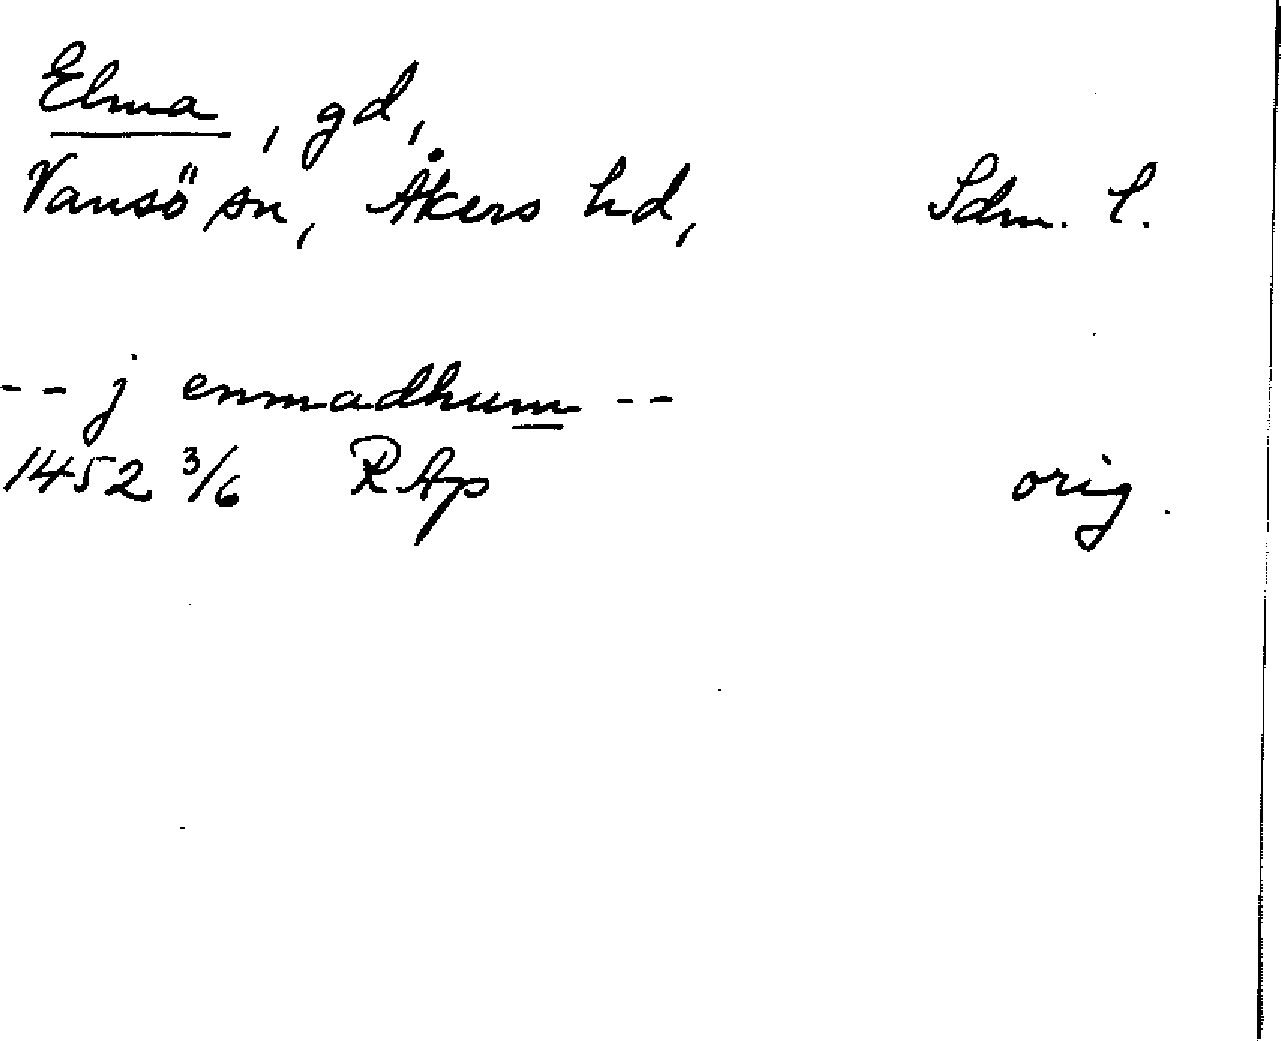 Elma, gd,
Vansö sn, Åkers hd, Sdm. l.
-- j enmadhum --
1452 3/6 RAp orig.